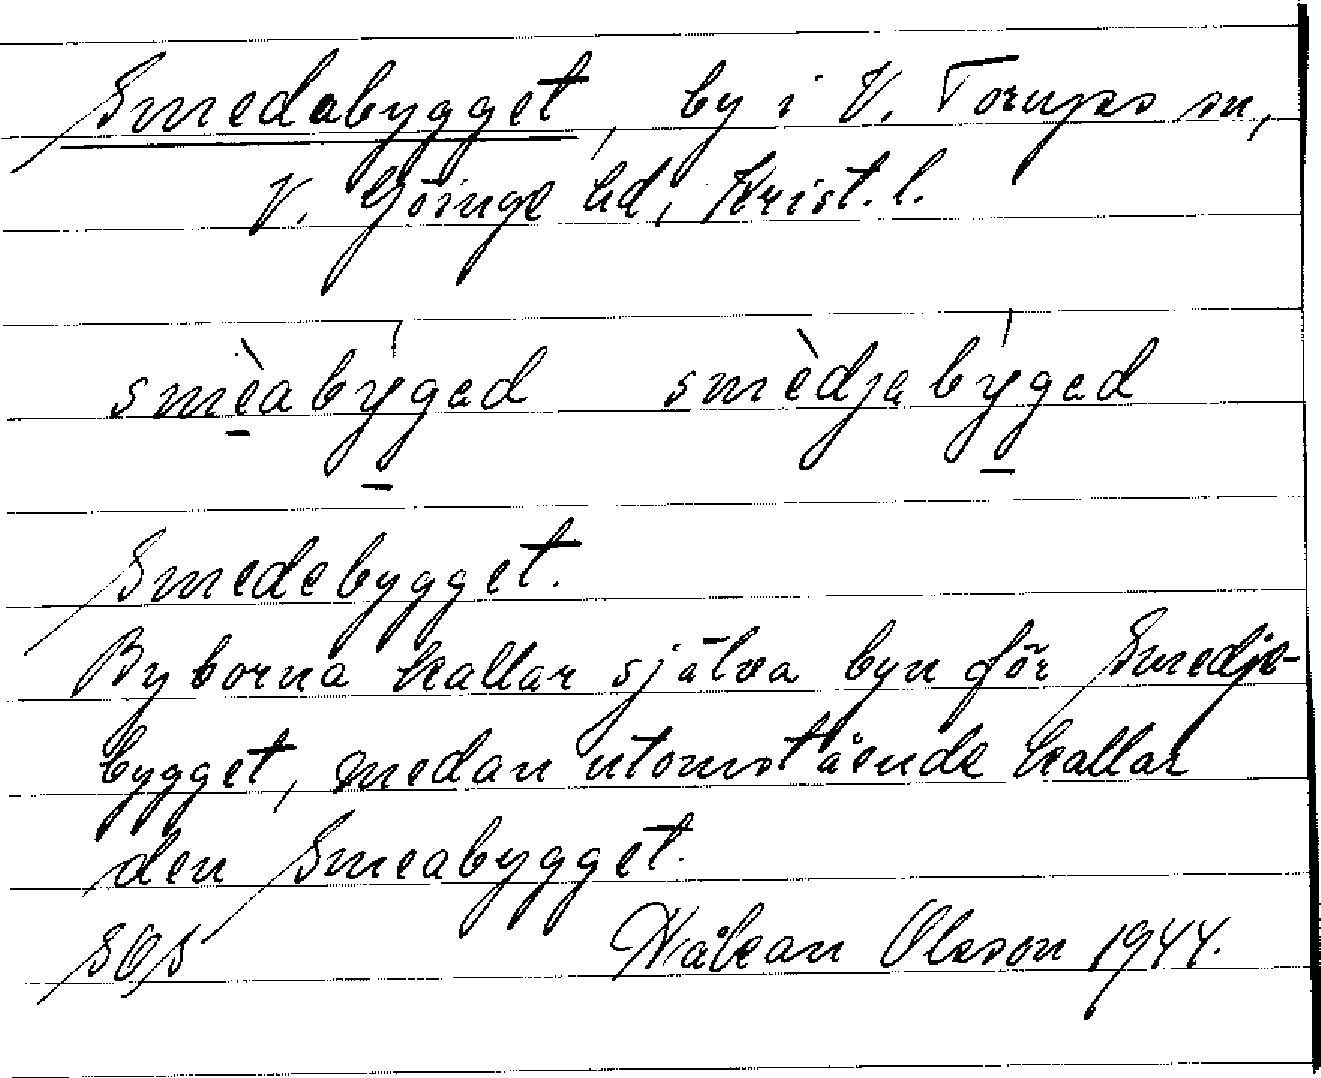 Smedabygget, by i V. Torups sn,
V. Göinge hd, Krist. l.
smèabýgad smèdjabýgad
Smedebygget.
Byborna kallar själva byn för Smedje-
bygget, medan utomstående kallar
den Smeabygget.
SOS Håkan Olsson 1944.